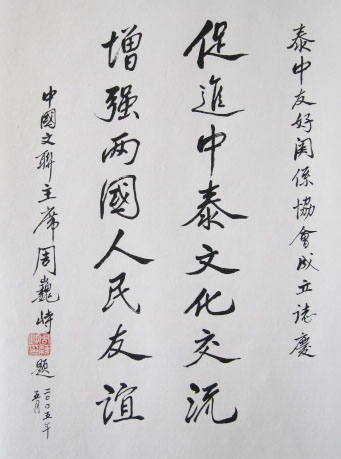 泰中友好関係協會成立誌慶
促進中泰文化交流
增强两國人民友誼
中國文聯主席周巍峙
題
二〇〇五年
五月